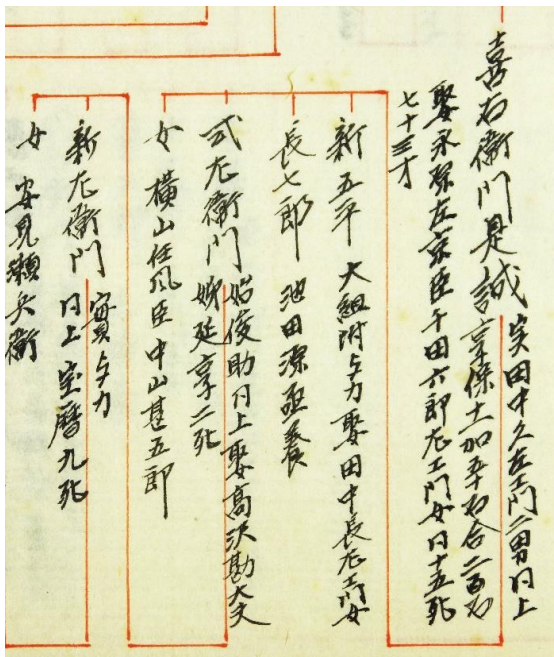 喜右衛門是誠 実田中久左エ門二男 同上
享保十一加五十石合二百石
娶永原左京臣千田六郎左エ門女 同十五死
七十三才
新五平 大組附与力 娶田中長左エ門女
長七郎 池田源丞養
弐左衛門 始俊助 同上 娶高沢勘太夫
娣 延享二死
女 横山任風臣中山甚五郎
新左衛門 實与力
同上 宝暦九死
女 安見瀬兵衛